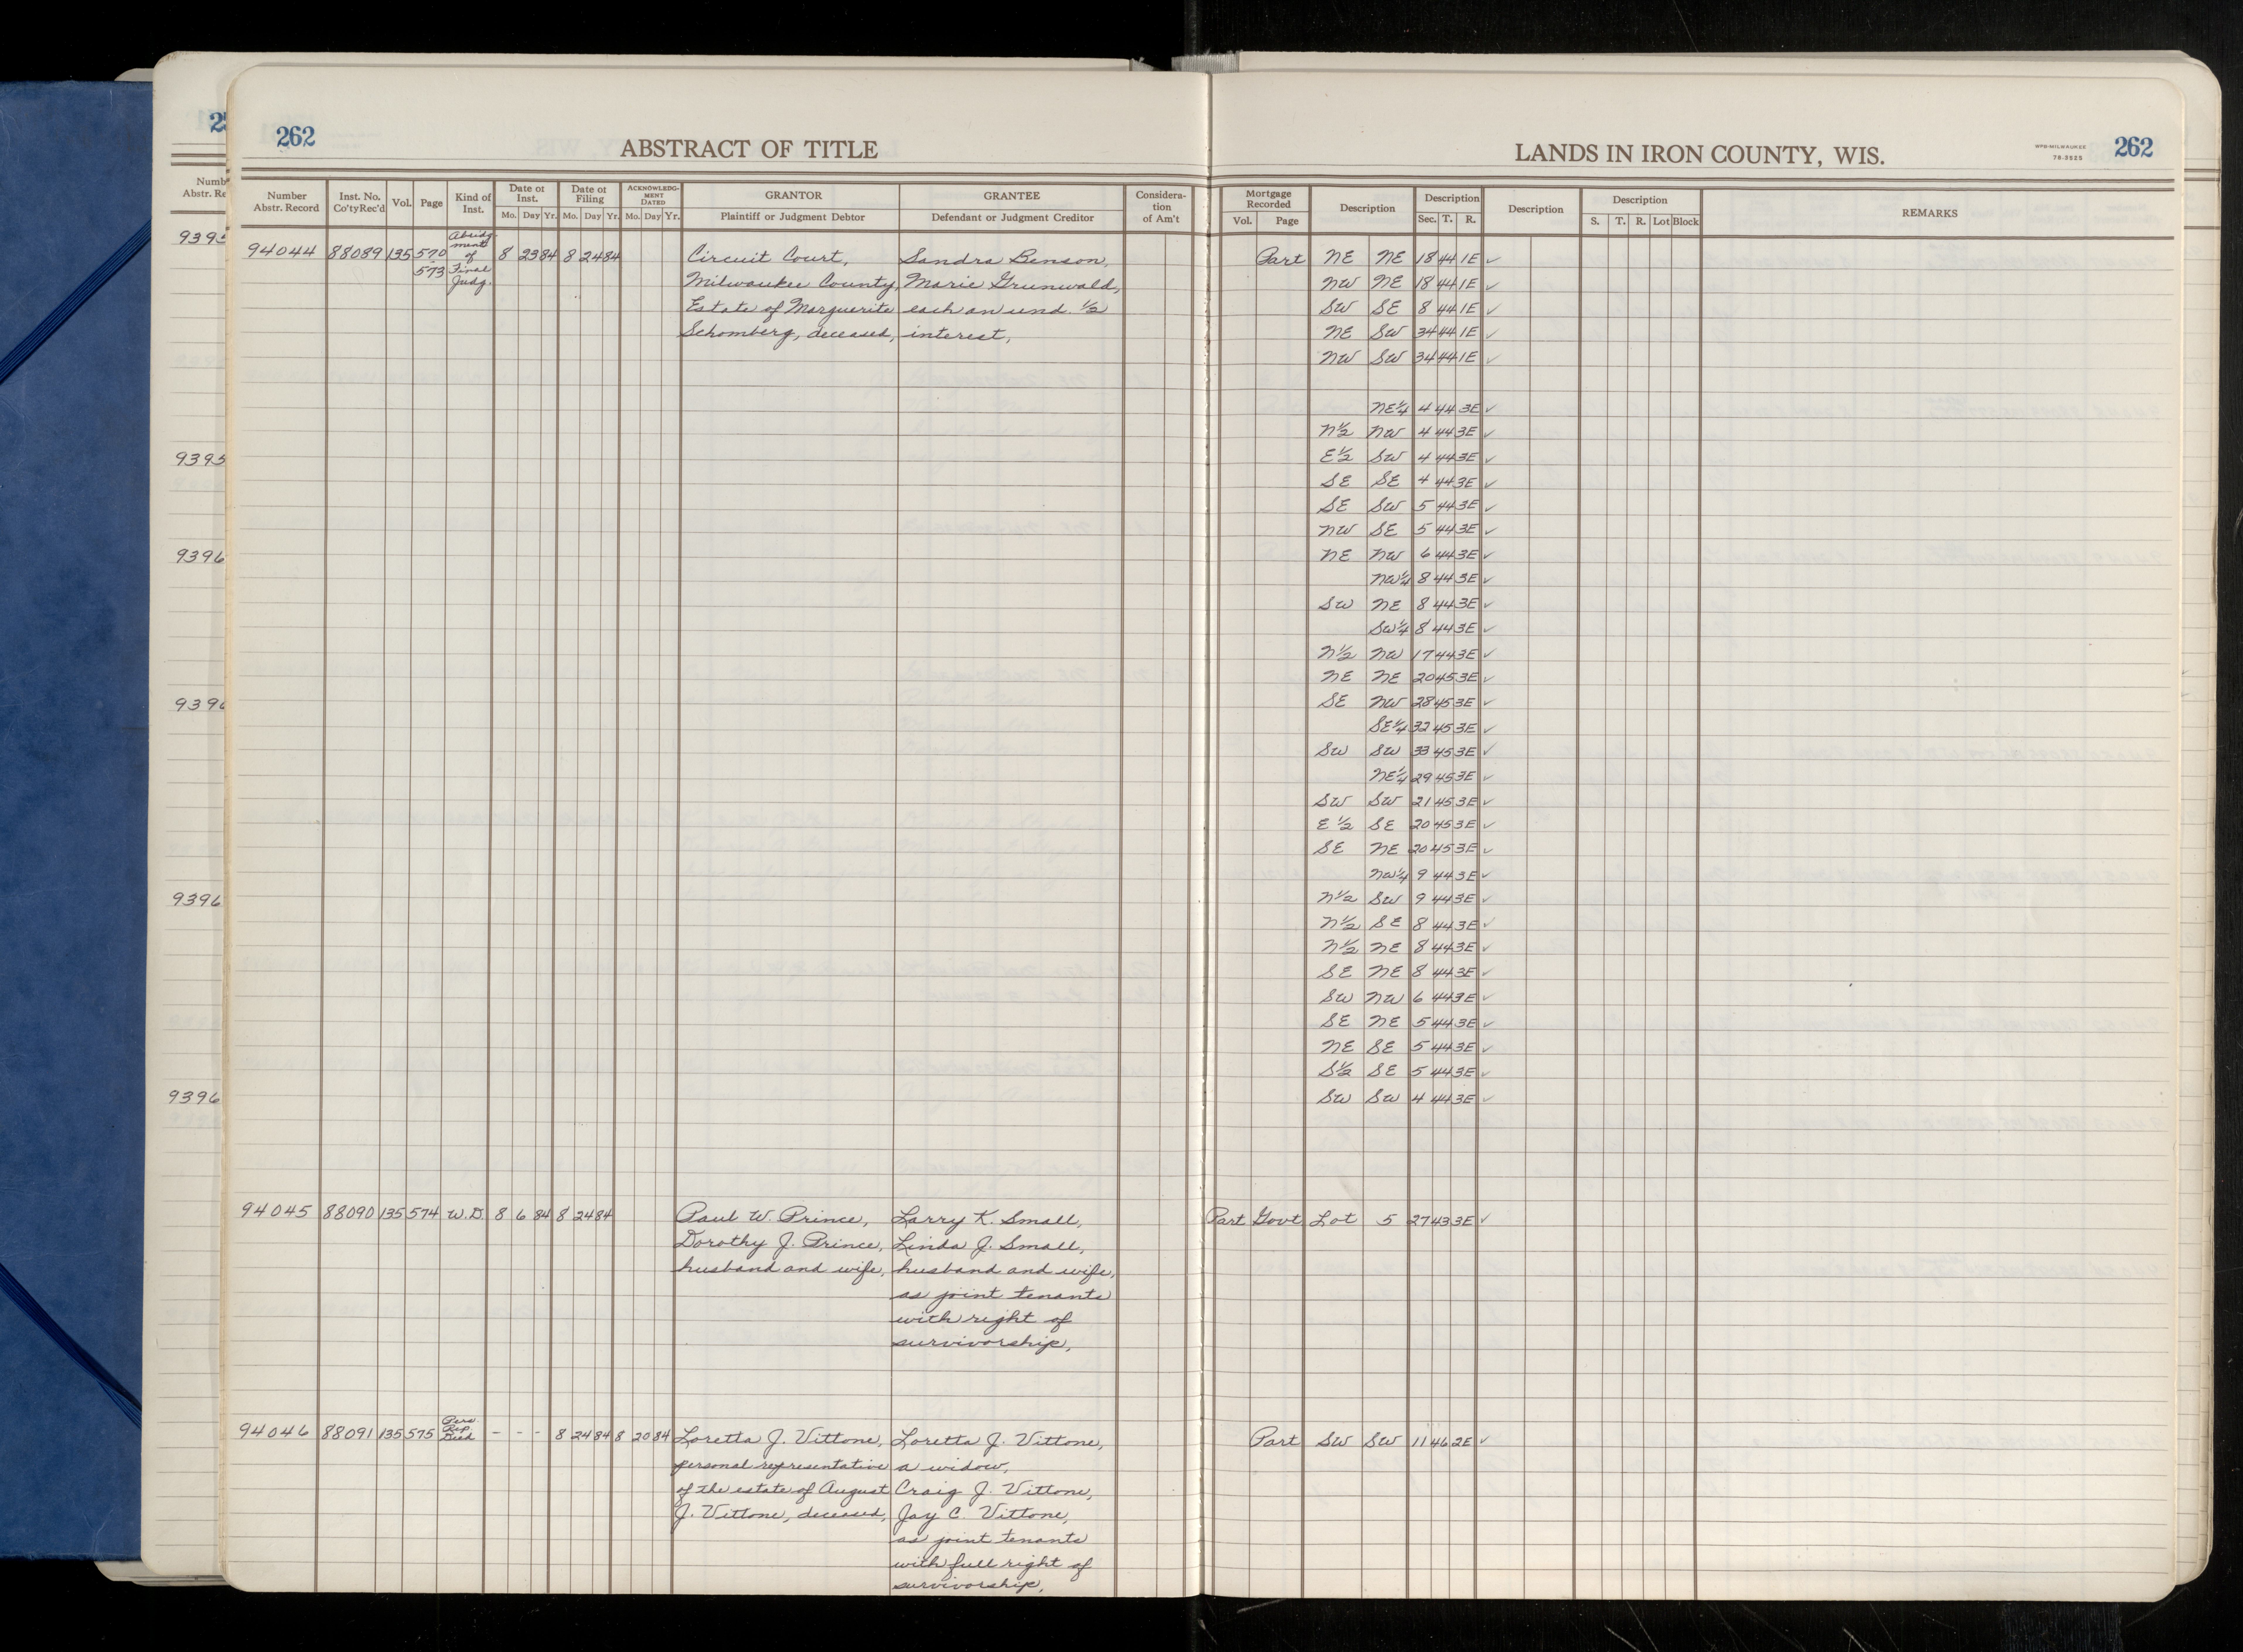 262
ABSTRACT OF TITLE
LANDS IN IRON COUNTY, WIS.
WPB-MILWAUKEE
78-3525
262
Number Abstr. Record
Inst. No. Co'ty Rec'd
Vol.
Page
Kind of Inst.
Date of Inst.
Mo. Day Yr.
Date of Filing
Mo. Day Yr.
ACKNOWLEDGMENT DATED
Mo. Day Yr.
GRANTOR
Plaintiff or Judgment Debtor
GRANTEE
Defendant or Judgment Creditor
Consideration of Am't
Mortgage Recorded
Vol. Page
Description
Description
Sec. T. R.
Description
Description
S. T. R. Lot Block
REMARKS
94044 88089 135 570 573 Abridgment of Final Judg. 8 23 84 8 24 84 Circuit Court, Sandra Benson, Part NE NE 18 44 1E ✓
Milwaukee County, Marie Grunwald, NW NE 18 44 1E ✓
Estate of Marguerite each an und. 1/2 SW SE 8 44 1E ✓
Schomberg, deceased, interest, NE SW 34 44 1E ✓
NW SW 34 44 1E ✓
NE1/4 4 44 3E ✓
N1/2 NW 4 44 3E ✓
E1/2 SW 4 44 3E ✓
SE SE 4 44 3E ✓
SE SW 5 44 3E ✓
NW SE 5 44 3E ✓
NE NW 6 44 3E ✓
NW1/4 8 44 3E ✓
SW NE 8 44 3E ✓
SW1/4 8 44 3E ✓
N1/2 NW 17 44 3E ✓
NE NE 20 45 3E ✓
SE NW 28 45 3E ✓
SE1/4 32 45 3E ✓
SW SW 33 45 3E ✓
NE1/4 29 45 3E ✓
SW SW 21 45 3E ✓
E1/2 SE 20 45 3E ✓
SE NE 20 45 3E ✓
NW1/4 9 44 3E ✓
N1/2 SW 9 44 3E ✓
N1/2 SE 8 44 3E ✓
N1/2 NE 8 44 3E ✓
SE NE 8 44 3E ✓
SW NW 6 44 3E ✓
SE NE 5 44 3E ✓
NE SE 5 44 3E ✓
S1/2 SE 5 44 3E ✓
SW SW 4 44 3E ✓
94045 88090 135 574 W.D. 8 6 84 8 24 84 Paul W. Prince, Larry K. Small, Part Govt Lot 5 27 43 3E ✓
Dorothy J. Prince, Linda J. Small,
husband and wife, husband and wife,
as joint tenants
with right of
survivorship,
94046 88091 135 575 Pers. Rep. Deed - - - 8 24 84 8 20 84 Loretta J. Vittone, Loretta J. Vittone, Part SW SW 11 46 2E ✓
personal representative a widow,
of the estate of August Craig J. Vittone,
J. Vittone, deceased, Jay C. Vittone,
as joint tenants
with full right of
survivorship,